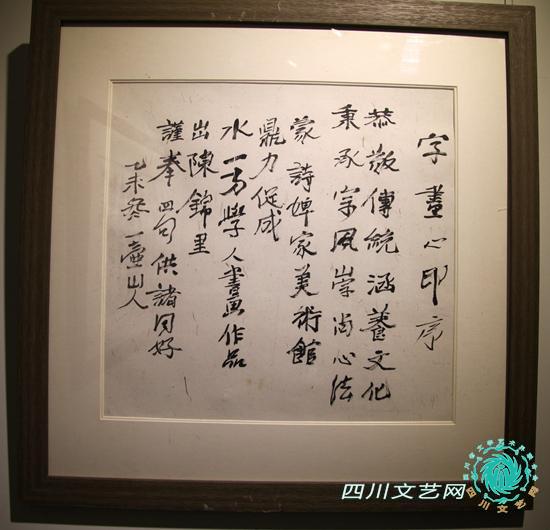 字畫心印序
恭敬傳統涵養文化
秉承宗風崇尚心法
蒙詩婢家美術館
鼎力促成
水一方學人書畫作品
出陳錦里
謹奉四句供諸同好
乙未冬一壺山人
四川文艺网
四川文艺网